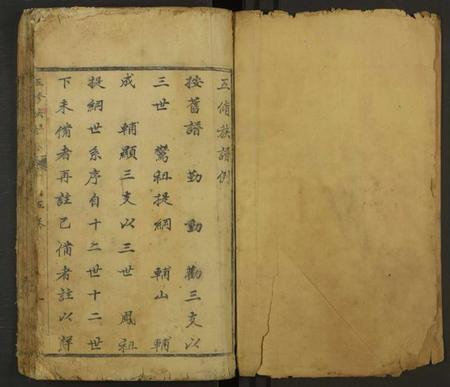 五脩族譜例
按舊譜 勤 動 勸三支以
三世 鸞祖提綱 輔山 輔
成 輔顯三支以三世 鳳祖
提綱世系序自十二世十二世
下未備者再註已備者註以詳